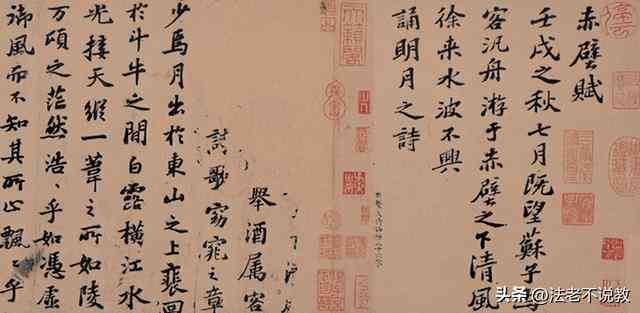 赤壁賦
壬戌之秋七月既望蘇子與
客汎舟游于赤壁之下清風
徐来水波不興
誦明月之詩
舉酒属客
詩歌窈窕之章
少焉月出於東山之上裵回
於斗牛之間白露橫江水
光接天縱一葦之所如陵
万頃之茫然浩〻乎如憑虛
御風而不知其所止飄〻乎
天籟閣
头条 @法老不说教